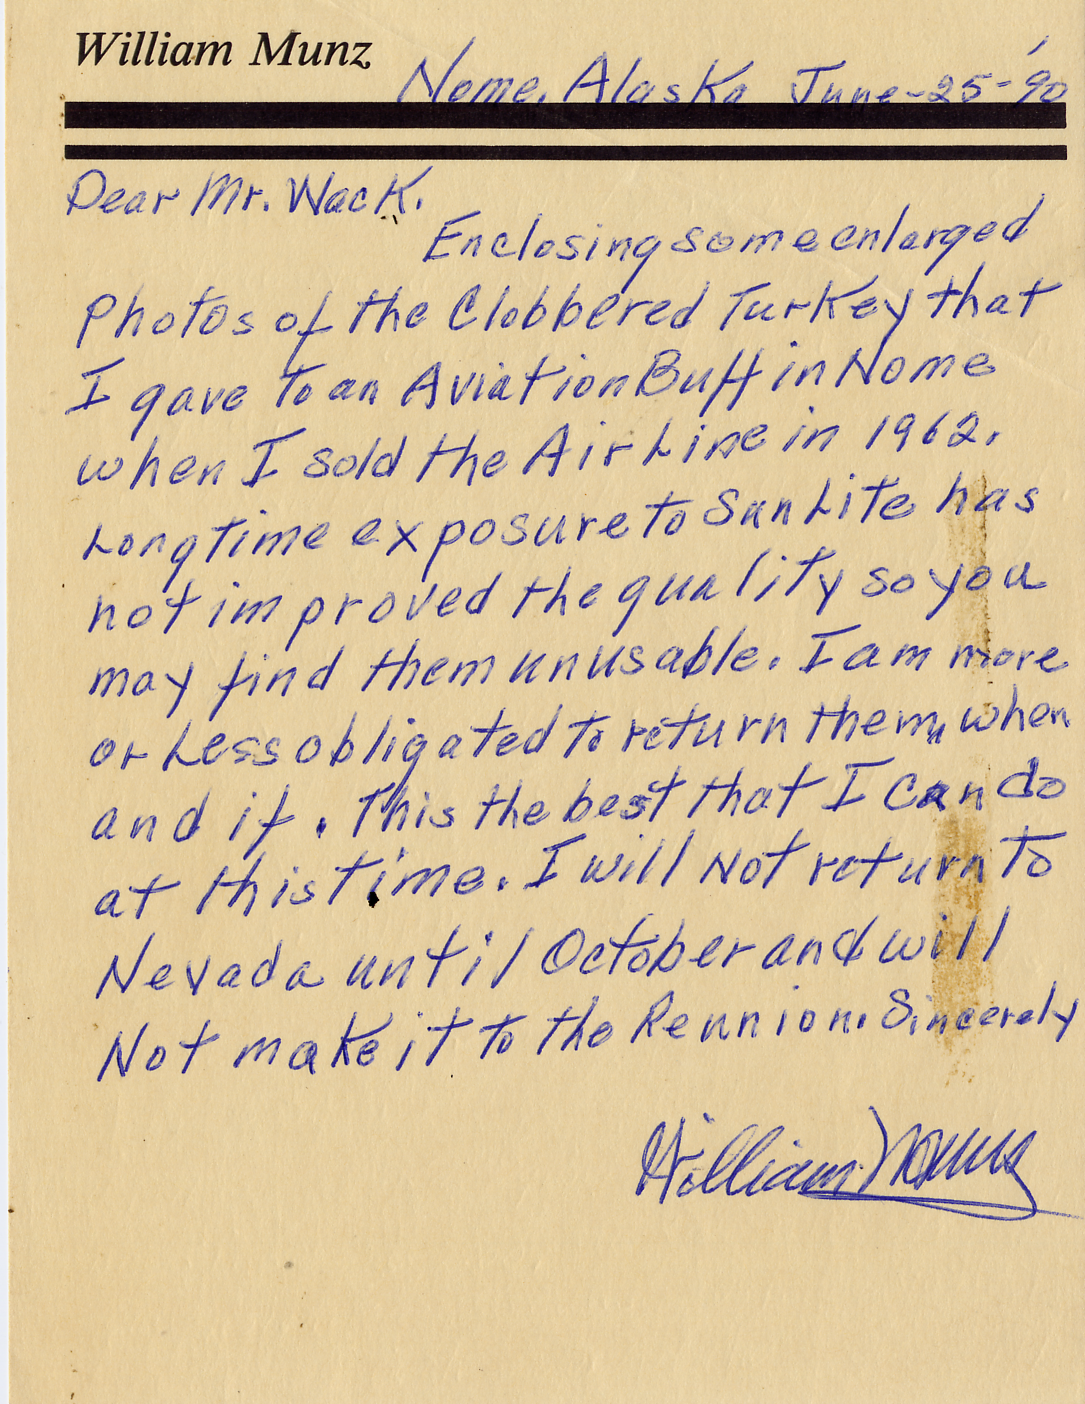 William Munz
Nome, Alaska June-25-'90
Dear Mr. Wack.
Enclosing some enlarged
Photos of the Clobbered Turkey that
I gave to an Aviation Buff in Nome
when I sold the Air Line in 1962.
Longtime exposure to SunLite has
not improved the quality so you
may find them unusable. I am more
or Less obligated to return them, when
and if. This the best that I can do
at this time. I will Not return to
Nevada until October and will
Not make it to the Reunion. Sincerely
William Munz